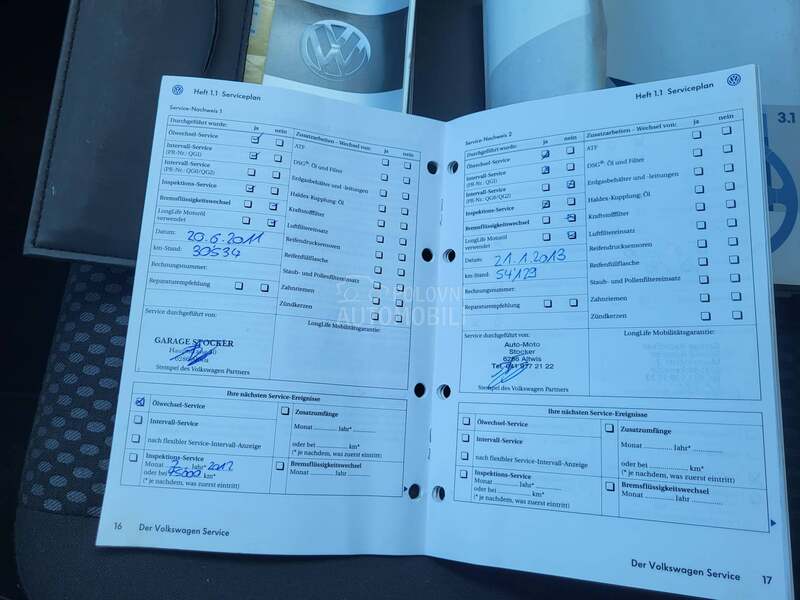 Heft 1.1 Serviceplan
Service-Nachweis 1
Durchgeführt wurde: ja nein
Ölwechsel-Service
Intervall-Service
(PR-Nr.: QG1)
Intervall-Service
(PR-Nr.: QG0/QG2)
Inspektions-Service
Bremsflüssigkeitswechsel
LongLife Motoröl
verwendet
Datum: 20.6.2011
km-Stand: 30534
Rechnungsnummer:
Reparaturempfehlung
Zusatzarbeiten – Wechsel von: ja nein
ATF
DSG®: Öl und Filter
Erdgasbehälter und -leitungen
Haldex-Kupplung: Öl
Kraftstofffilter
Luftfiltereinsatz
Reifendrucksensoren
Reifenfüllflasche
Staub- und Pollenfiltereinsatz
Zahnriemen
Zündkerzen
Service durchgeführt von:
LongLife Mobilitätsgarantie:
GARAGE STOCKER
Stempel des Volkswagen Partners
Ihre nächsten Service-Ereignisse
Ölwechsel-Service
Intervall-Service
nach flexibler Service-Intervall-Anzeige
Inspektions-Service
Monat Jahr* 2012
oder bei km*
(* je nachdem, was zuerst eintritt)
Zusatzumfänge
Monat Jahr
oder bei km*
Bremsflüssigkeitswechsel
Monat Jahr
16 Der Volkswagen Service
Heft 1.1 Serviceplan
Service-Nachweis 2
Durchgeführt wurde: ja nein
Ölwechsel-Service
Intervall-Service
(PR-Nr.: QG1)
Intervall-Service
(PR-Nr.: QG0/QG2)
Inspektions-Service
Bremsflüssigkeitswechsel
LongLife Motoröl
verwendet
Datum: 21.1.2013
km-Stand: 54129
Rechnungsnummer:
Reparaturempfehlung
Zusatzarbeiten – Wechsel von: ja nein
ATF
DSG®: Öl und Filter
Erdgasbehälter und -leitungen
Haldex-Kupplung: Öl
Kraftstofffilter
Luftfiltereinsatz
Reifendrucksensoren
Reifenfüllflasche
Staub- und Pollenfiltereinsatz
Zahnriemen
Zündkerzen
Service durchgeführt von:
LongLife Mobilitätsgarantie:
Auto-Moto
Stocker
6286 Altwis
Tel. 041 917 21 22
Stempel des Volkswagen Partners
Ihre nächsten Service-Ereignisse
Ölwechsel-Service
Intervall-Service
nach flexibler Service-Intervall-Anzeige
Inspektions-Service
Monat Jahr*
oder bei km*
(* je nachdem, was zuerst eintritt)
Zusatzumfänge
Monat Jahr
oder bei km*
Bremsflüssigkeitswechsel
Monat Jahr
Der Volkswagen Service 17
3.1
POLOVNI
AUTOMOBILI